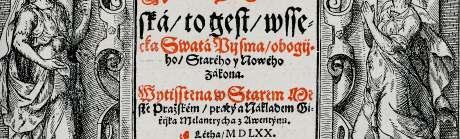 ská / to gest / wsse-
cka Swatá Pjsma / obogij-
ho / Starého y Nowého
Zákona.
Wytisstěna w Starém Mě-
stě Pražském / pracý a Nákladem Gi-
řijka Melantrycha z Awentýnu.
Létha / MDLXX.